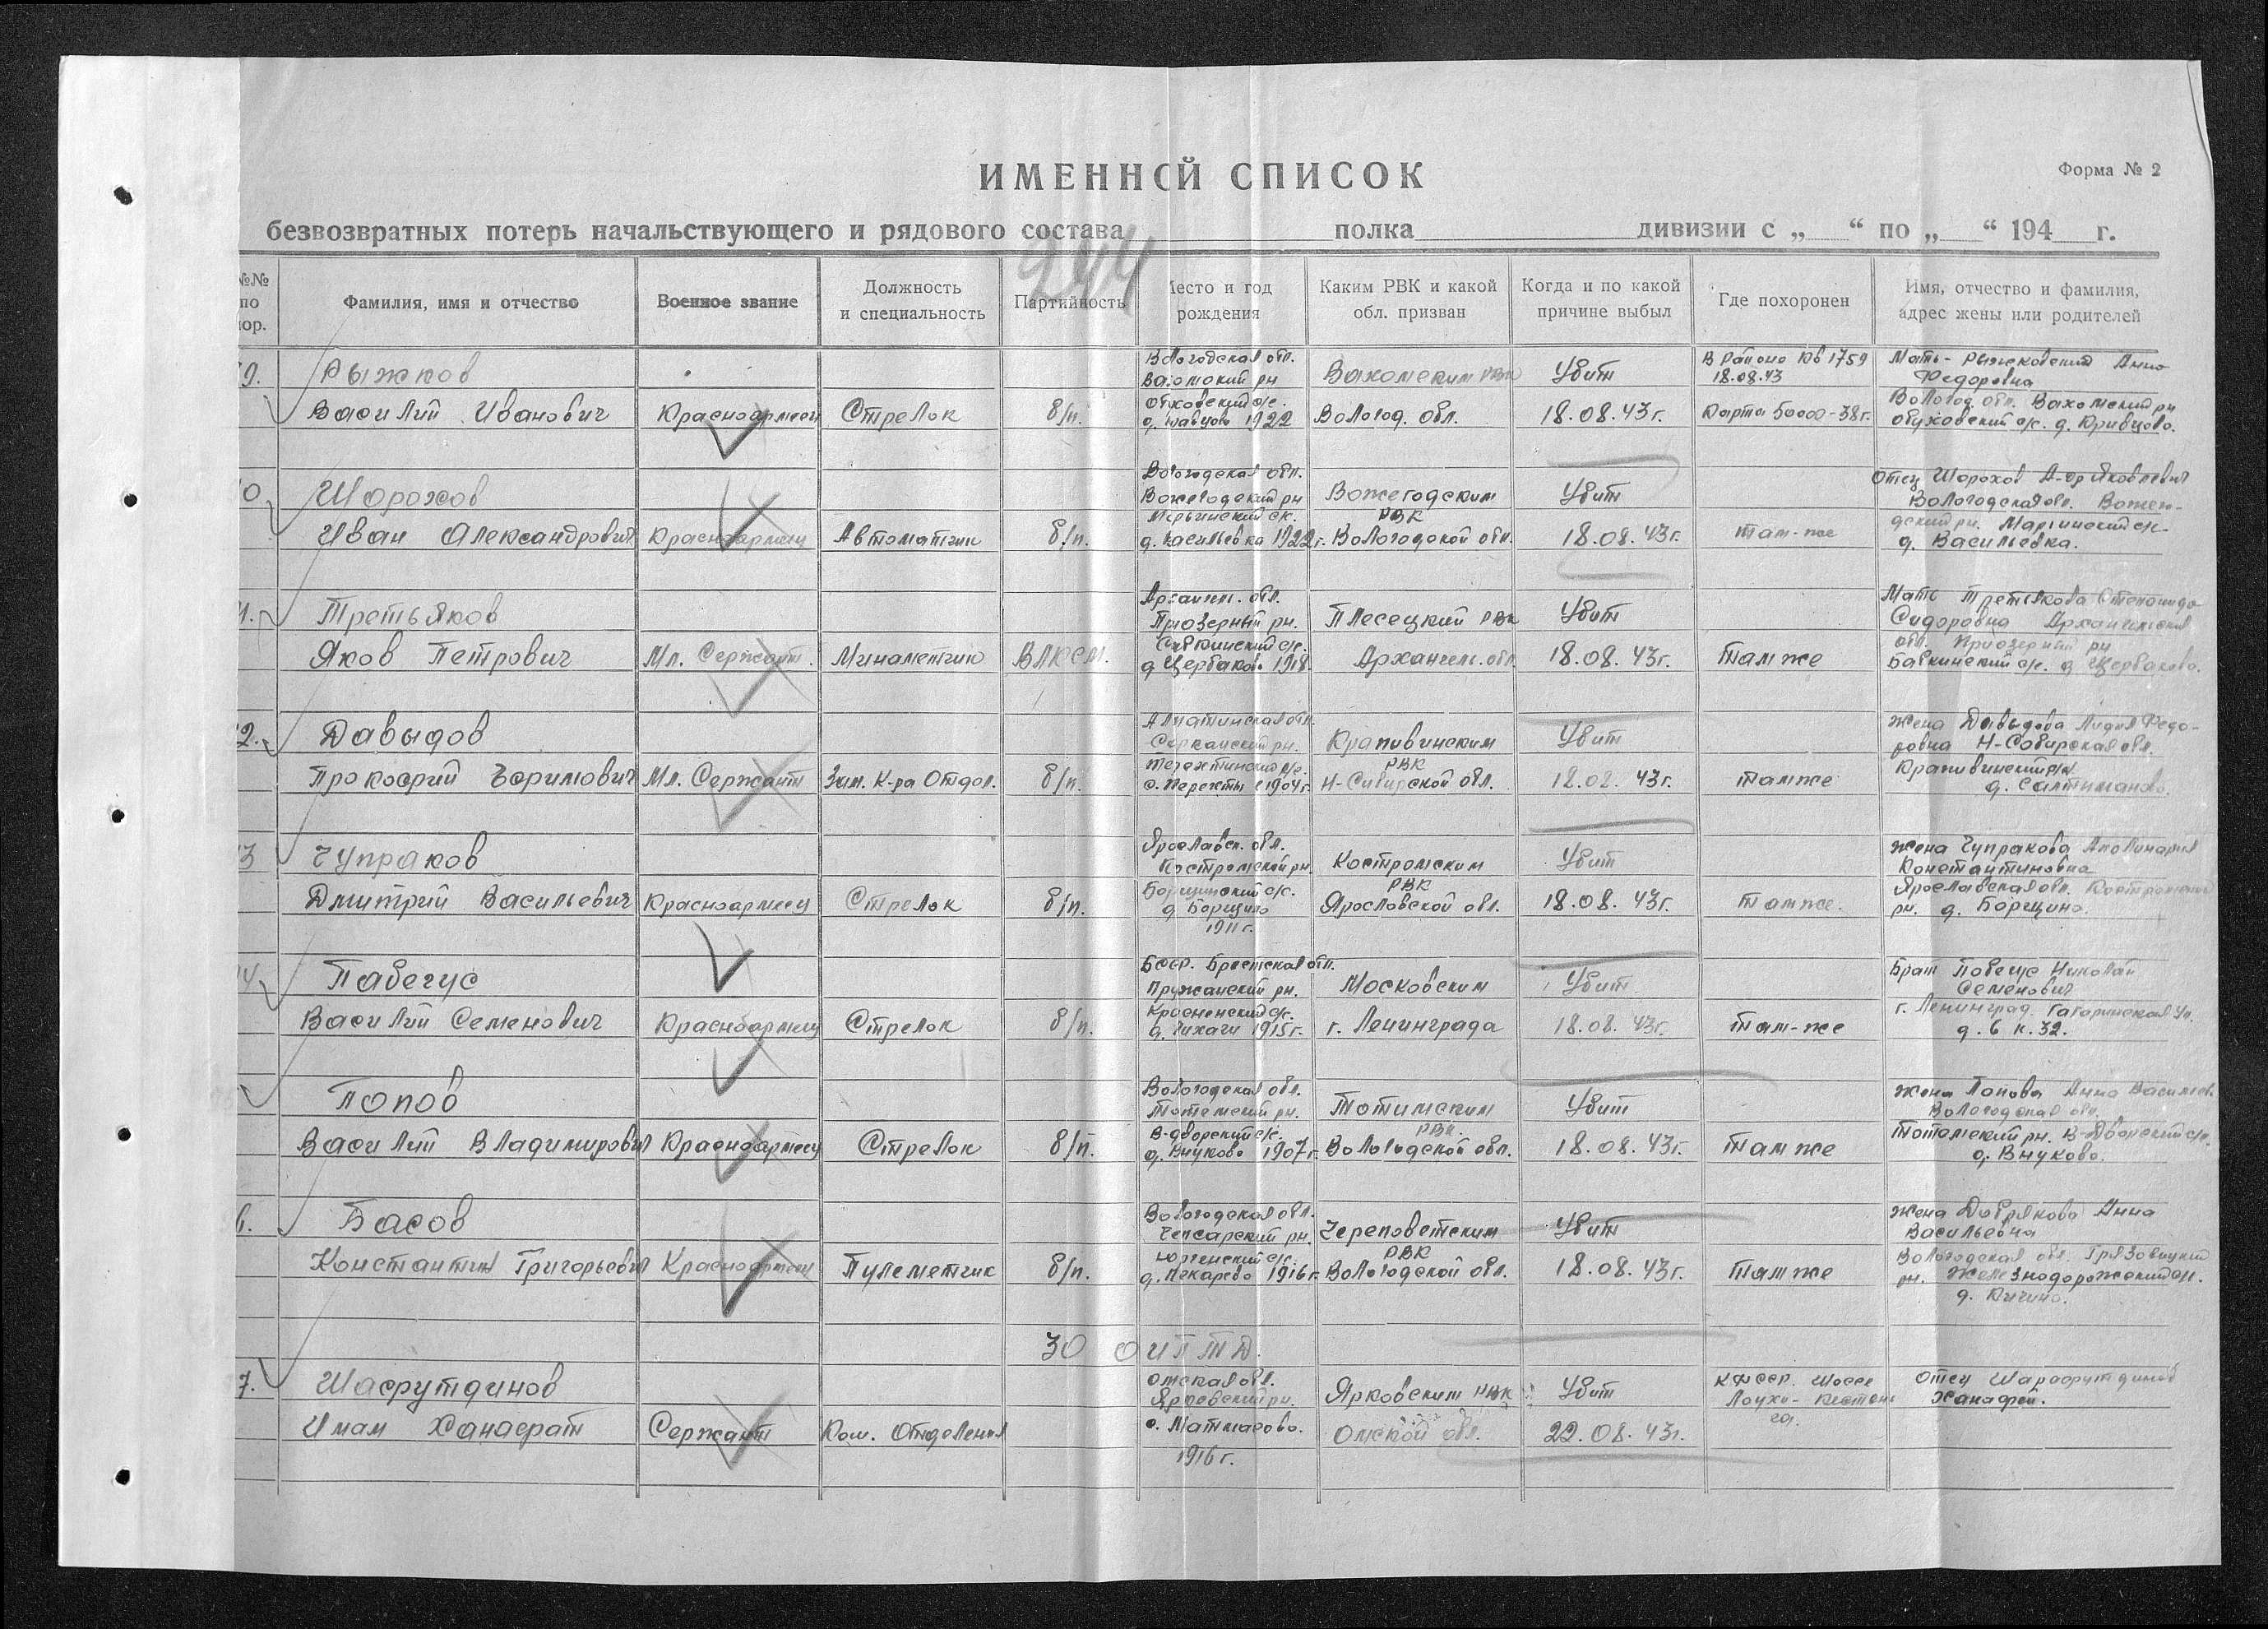 ИМЕННОЙ СПИСОК
Форма № 2
безвозвратных потерь начальствующего и рядового состава полка дивизии с „ “ по „ “ 194 г.
244
№№ по пор.
Фамилия, имя и отчество
Военное звание
Должность и специальность
Партийность
Место и год рождения
Каким РВК и какой обл. призван
Когда и по какой причине выбыл
Где похоронен
Имя, отчество и фамилия, адрес жены или родителей
9.
Рыжков
Василий Иванович
Красноармеец
Стрелок
б/п.
Вологодская обл.
рн
с/с.
1922
Вохомским РВК
Вологод. обл.
Убит
18.08.43г.
В районе кв 1759
18.08.43
Карта 50000-38г.
Мать - Анна
Федоровна
Вологод. обл. Вахомский рн
с/с. д. Кривцово.
0
Шорохов
Иван Александрович
Красноармеец
Автоматчик
б/п.
Вологодская обл.
Вожегодский рн
с/с.
д. Васильевка 1922г.
Вожегодским
РВК
Вологодской обл.
Убит
18.08.43г.
там-же
Отец Шорохов Яковлевич
Вологодская обл. Вожего-
дский рн. с/с-
д. Васильевка.
1.
Третьяков
Яков Петрович
Мл. Сержант
Минометчик
ВЛКСМ.
Архангел. обл.
Приозерный рн.
с/с.
д Щербаково 1918
Плесецкий РВК
Архангел. обл.
Убит
18.08.43г.
Там же
Мать Третьякова
Сидоровна Архангельская
обл. Приозерный рн
с/с. д Щербаково.
2.
Давыдов
Прокофий Ефимович
Мл. Сержант
Зам. К-ра Отдел.
б/п.
Алматинская обл.
рн.
с/с.
1904г.
Крапивинским
РВК
Н-Сибирской обл.
Убит
43г.
там же
Жена Давыдова Лидия Федо-
ровна Н-Сибирская обл.
Крапивинский рн
д. Салтымаково.
3
Чупраков
Дмитрий Васильевич
Красноармеец
Стрелок
б/п.
Ярославск. обл.
Костромской рн.
Борщинский с/с.
д Борщино
1911г.
Костромским
РВК
Ярославской обл.
Убит
18.08.43г.
Там же.
Жена Чупракова Аполинария
Константиновна
Ярославская обл. Костромской
рн. д. Борщино.
4.
Пабегус
Василий Семенович
Красноармеец
Стрелок
б/п.
Бсср. Брестская обл.
Пружанский рн.
с/с.
д. Чихачи 1915г.
Московским
г. Ленинграда
Убит
18.08.43г.
Там-же
Брат Николай
Семенович
г. Ленинград. Гагаринская ул.
д. 6 к. 32.
Попов
Василий Владимирович
Красноармеец
Стрелок
б/п.
Вологодская обл.
Тотемский рн.
В-дворский с/с.
д. Внуково 1907г.
Тотимским
РВК.
Вологодской обл.
Убит
18.08.43г.
Там же
Жена Попова Анна Васильев.
Вологодская обл.
Тотемский рн. В-Дворский с/с.
д. Внуково.
6.
Басов
Константин Григорьевич
Красноармеец
Пулеметчик
б/п.
Вологодская обл.
рн.
с/с.
д. Пекарево 1916г.
Череповетским
РВК
Вологодской обл.
Убит
18.08.43г.
Там же
Жена Добрякова Анна
Васильевна
Вологодская обл. Грязовицкий
рн. Железнодорожский с/с.
30 оиптд.
7.
Шафрутдинов
Имам Ханафат
Сержант
Ком. Отделения
Омская обл.
рн.
с. Матмасово.
1916г.
Ярковским РВК
Омской обл.
Убит
22.08.43г.
КФсср. Шоссе
Лоухи-Кестень
га.
Отец
Ханафей.